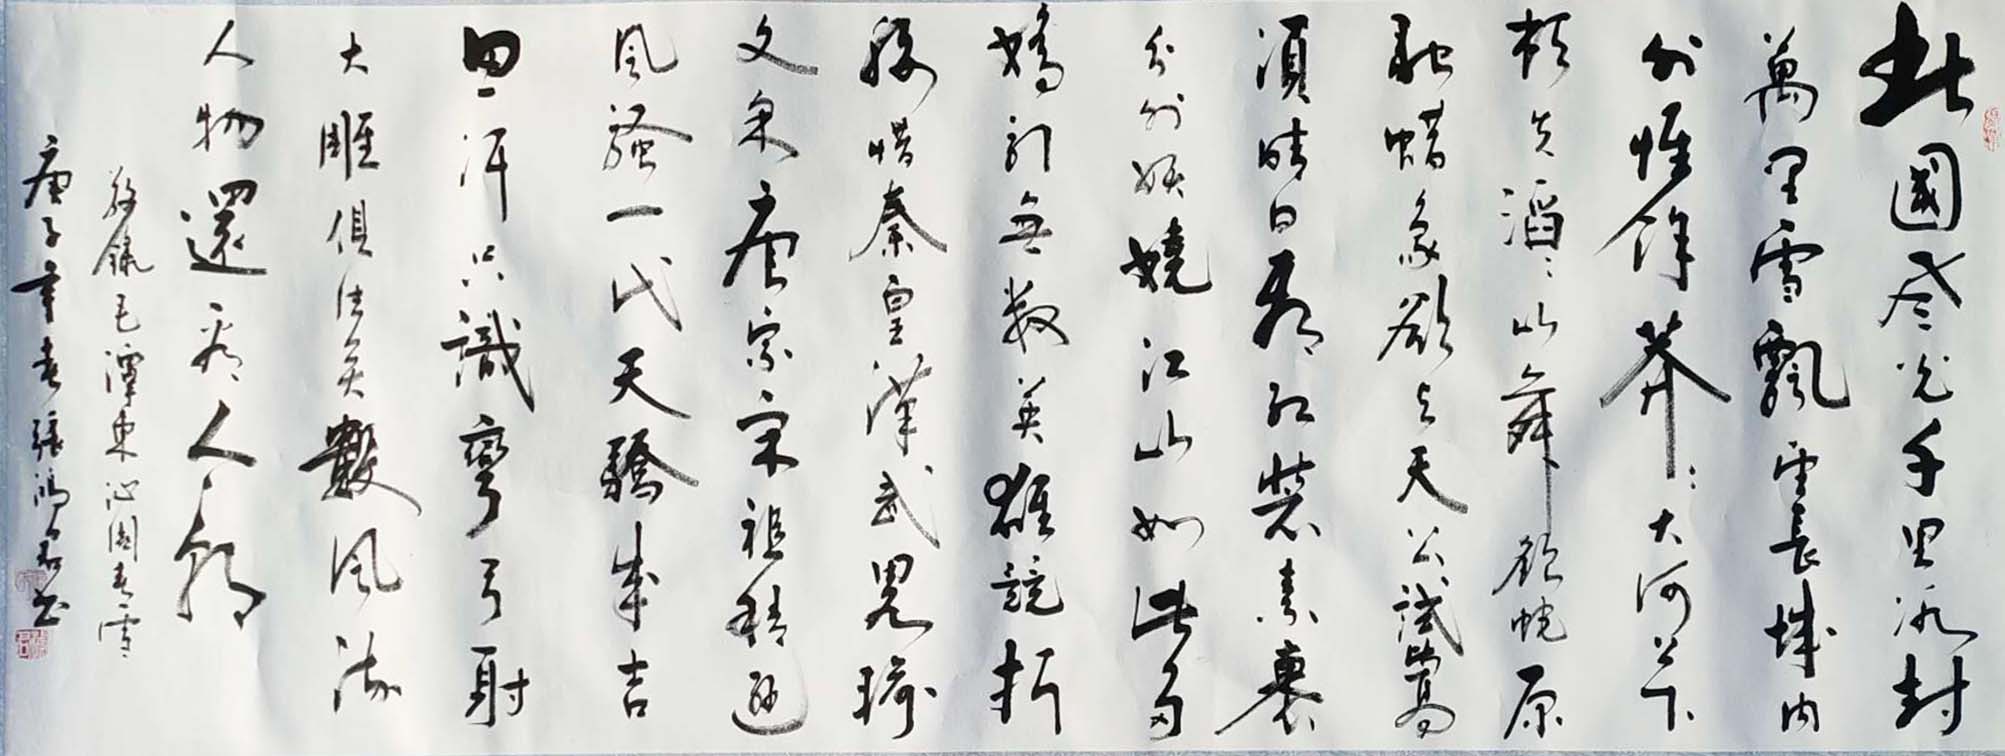 北國風光千里冰封
萬里雪飄望長城內
外惟餘莽〻大河上下
頓失滔〻山舞銀蛇原
馳蠟象欲與天公試高
須晴日看紅裝素裹
分外妖嬈江山如此多
嬌引無數英雄競折
腰惜秦皇漢武略輸
文采唐宗宋祖稍遜
風騷一代天驕成吉
思汗只識彎弓射
大雕俱往矣數風流
人物還看今朝
敬錄毛澤東沁園春雪
庚子年春張鴻君书